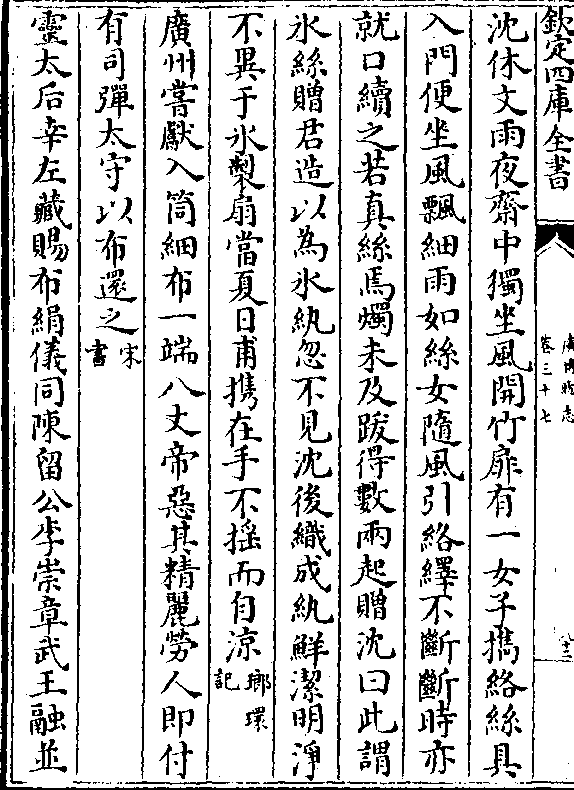 欽定四庫全書
廣博物志
卷三十七
十三
沈休文雨夜齋中獨坐風開竹扉有一女子擕絡絲具
入門便坐風飄細雨如絲女隨風引絡繹不斷斷時亦
就口續之若真絲焉燭未及跋得數兩起贈沈曰此謂
氷絲贈君造以為氷紈忽不見沈後織成紈鮮潔明淨
不異于氷製扇當夏日甫擕在手不揺而自涼瑯環記
廣州嘗獻入筒細布一端八丈帝惡其精麗勞人即付
有司彈太守以布還之宋書
靈太后幸左藏賜布絹儀同陳留公李崇章武王融並